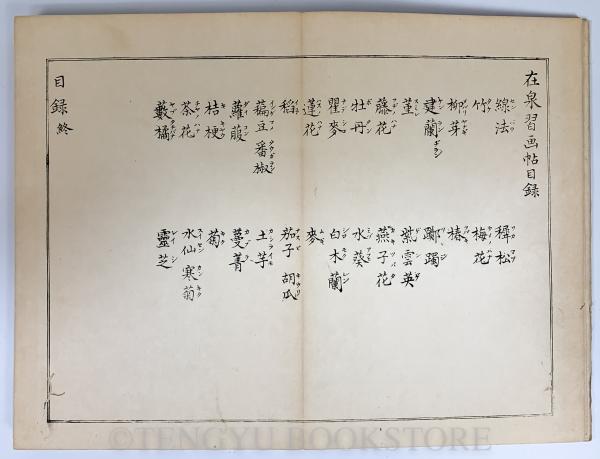 在泉習画帖目録
線法 稺松
竹 梅花
柳芽 椿
建蘭 躑躅
菫 紫雲英
藤花 燕子花
牡丹 水葵
瞿麥 白木蘭
蓮花 麥
稻 茄子 胡瓜
藊豆 番椒 土芋
蘿菔 蔓菁
桔梗 菊
茶花 水仙 寒菊
藪橘 靈芝
目録終
©TENGYU BOOKSTORE